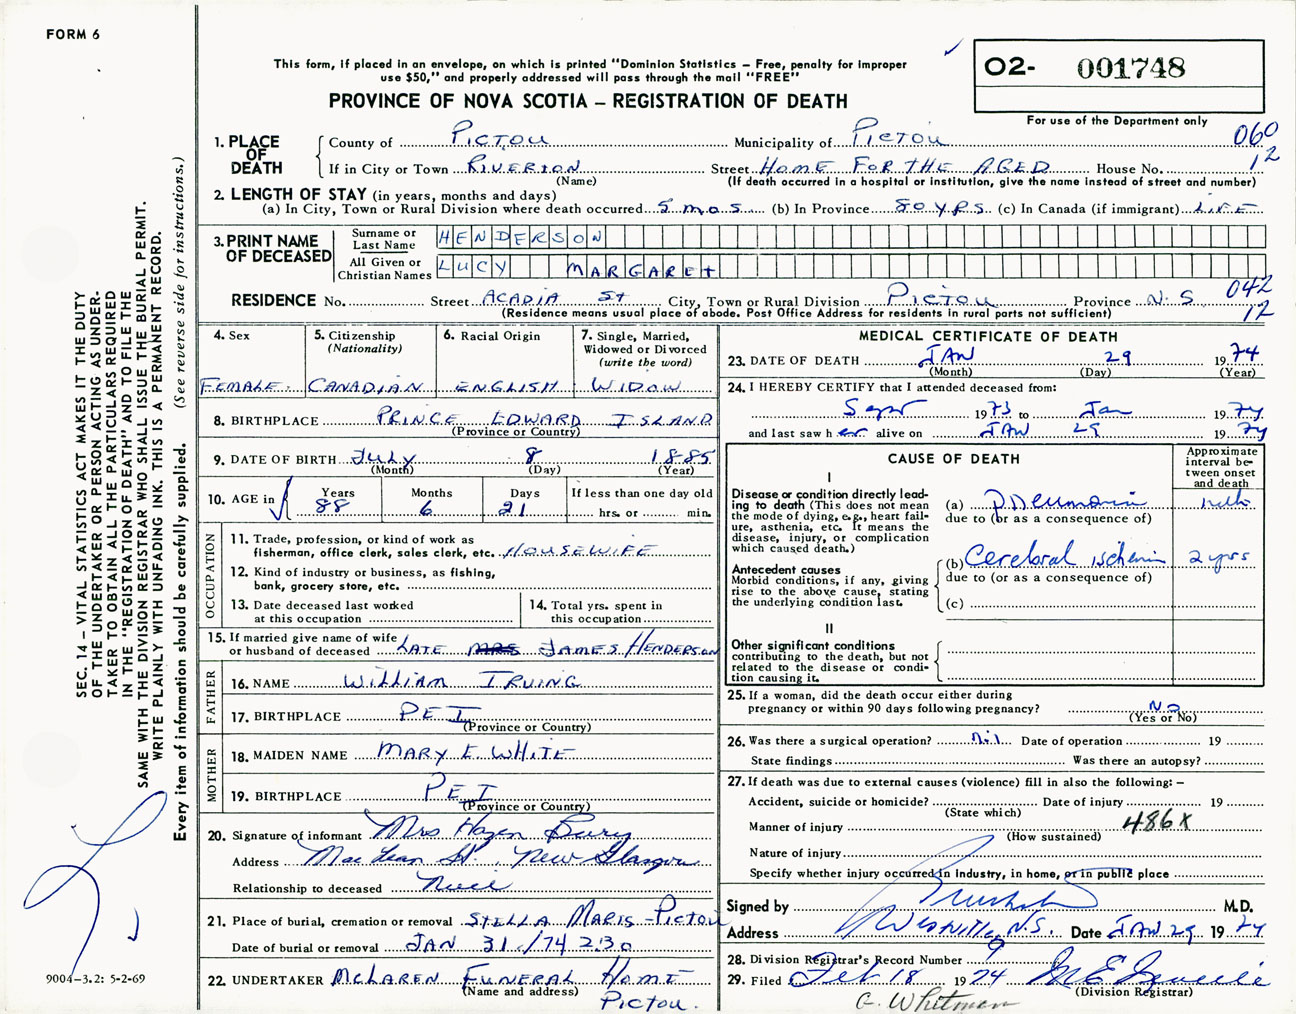 FORM 6
This form, if placed in an envelope, on which is printed "Dominion Statistics – Free, penalty for improper
use $50," and properly addressed will pass through the mail "FREE"
PROVINCE OF NOVA SCOTIA – REGISTRATION OF DEATH
O2- 001748
For use of the Department only
SEC. 14 – VITAL STATISTICS ACT MAKES IT THE DUTY
OF THE UNDERTAKER OR PERSON ACTING AS UNDER-
TAKER TO OBTAIN ALL THE PARTICULARS REQUIRED
IN THE "REGISTRATION OF DEATH" AND TO FILE THE
SAME WITH THE DIVISION REGISTRAR WHO SHALL ISSUE THE BURIAL PERMIT.
WRITE PLAINLY WITH UNFADING INK. THIS IS A PERMANENT RECORD.
Every item of information should be carefully supplied. (See reverse side for instructions.)
9004–3.2: 5-2-69
1. PLACE OF DEATH
County of PICTOU Municipality of PICTOU 060
If in City or Town RIVERTON Street HOME FOR THE AGED House No. 12
(Name) (If death occurred in a hospital or institution, give the name instead of street and number)
2. LENGTH OF STAY (in years, months and days)
(a) In City, Town or Rural Division where death occurred 5 mos. (b) In Province 80 yrs. (c) In Canada (if immigrant) LIFE
3. PRINT NAME OF DECEASED
Surname or Last Name HENDERSON
All Given or Christian Names LUCY MARGARET
RESIDENCE No. Street ACADIA St City, Town or Rural Division PICTOU Province N.S 042
(Residence means usual place of abode. Post Office Address for residents in rural parts not sufficient) 12
4. Sex FEMALE
5. Citizenship (Nationality) CANADIAN
6. Racial Origin ENGLISH
7. Single, Married, Widowed or Divorced (write the word) WIDOW
8. BIRTHPLACE PRINCE EDWARD ISLAND
(Province or Country)
9. DATE OF BIRTH July 8 1885
(Month) (Day) (Year)
10. AGE in Years 88 Months 6 Days 21 If less than one day old hrs. or min.
OCCUPATION
11. Trade, profession, or kind of work as
fisherman, office clerk, sales clerk, etc. HOUSEWIFE
12. Kind of industry or business, as fishing,
bank, grocery store, etc.
13. Date deceased last worked
at this occupation
14. Total yrs. spent in
this occupation
15. If married give name of wife
or husband of deceased LATE MRS JAMES HENDERSON
FATHER
16. NAME WILLIAM IRVING
17. BIRTHPLACE PEI
(Province or Country)
MOTHER
18. MAIDEN NAME MARY E. WHITE
19. BIRTHPLACE PEI
(Province or Country)
20. Signature of informant Mrs Hazen
Address MacLean St. New Glasgow
Relationship to deceased Niece
21. Place of burial, cremation or removal STELLA MARIS – PICTOU
Date of burial or removal JAN 31 /74 2:30
22. UNDERTAKER McLAREN FUNERAL HOME
(Name and address) PICTOU.
MEDICAL CERTIFICATE OF DEATH
23. DATE OF DEATH JAN 29 1974
(Month) (Day) (Year)
24. I HEREBY CERTIFY that I attended deceased from:
Sept 1973 to Jan 1974
and last saw her alive on JAN 29 1974
CAUSE OF DEATH
Approximate interval between onset and death
I
Disease or condition directly lead-
ing to death (This does not mean
the mode of dying, e.g., heart fail-
ure, asthenia, etc. It means the
disease, injury, or complication
which caused death.)
(a) Pneumonia
due to (or as a consequence of)
Antecedent causes
Morbid conditions, if any, giving
rise to the above cause, stating
the underlying condition last.
(b) Cerebral ischemia 2 yrs
due to (or as a consequence of)
(c)
II
Other significant conditions
contributing to the death, but not
related to the disease or condi-
tion causing it.
25. If a woman, did the death occur either during
pregnancy or within 90 days following pregnancy? No
(Yes or No)
26. Was there a surgical operation? Nil Date of operation 19
State findings Was there an autopsy?
27. If death was due to external causes (violence) fill in also the following: –
Accident, suicide or homicide? Date of injury 19
(State which)
Manner of injury 486X
(How sustained)
Nature of injury
Specify whether injury occurred in industry, in home, or in public place
Signed by M.D.
Address Westville, N.S. Date JAN 29 1974
28. Division Registrar's Record Number 9
29. Filed Feb 18 1974
(Division Registrar)
C. Whitman